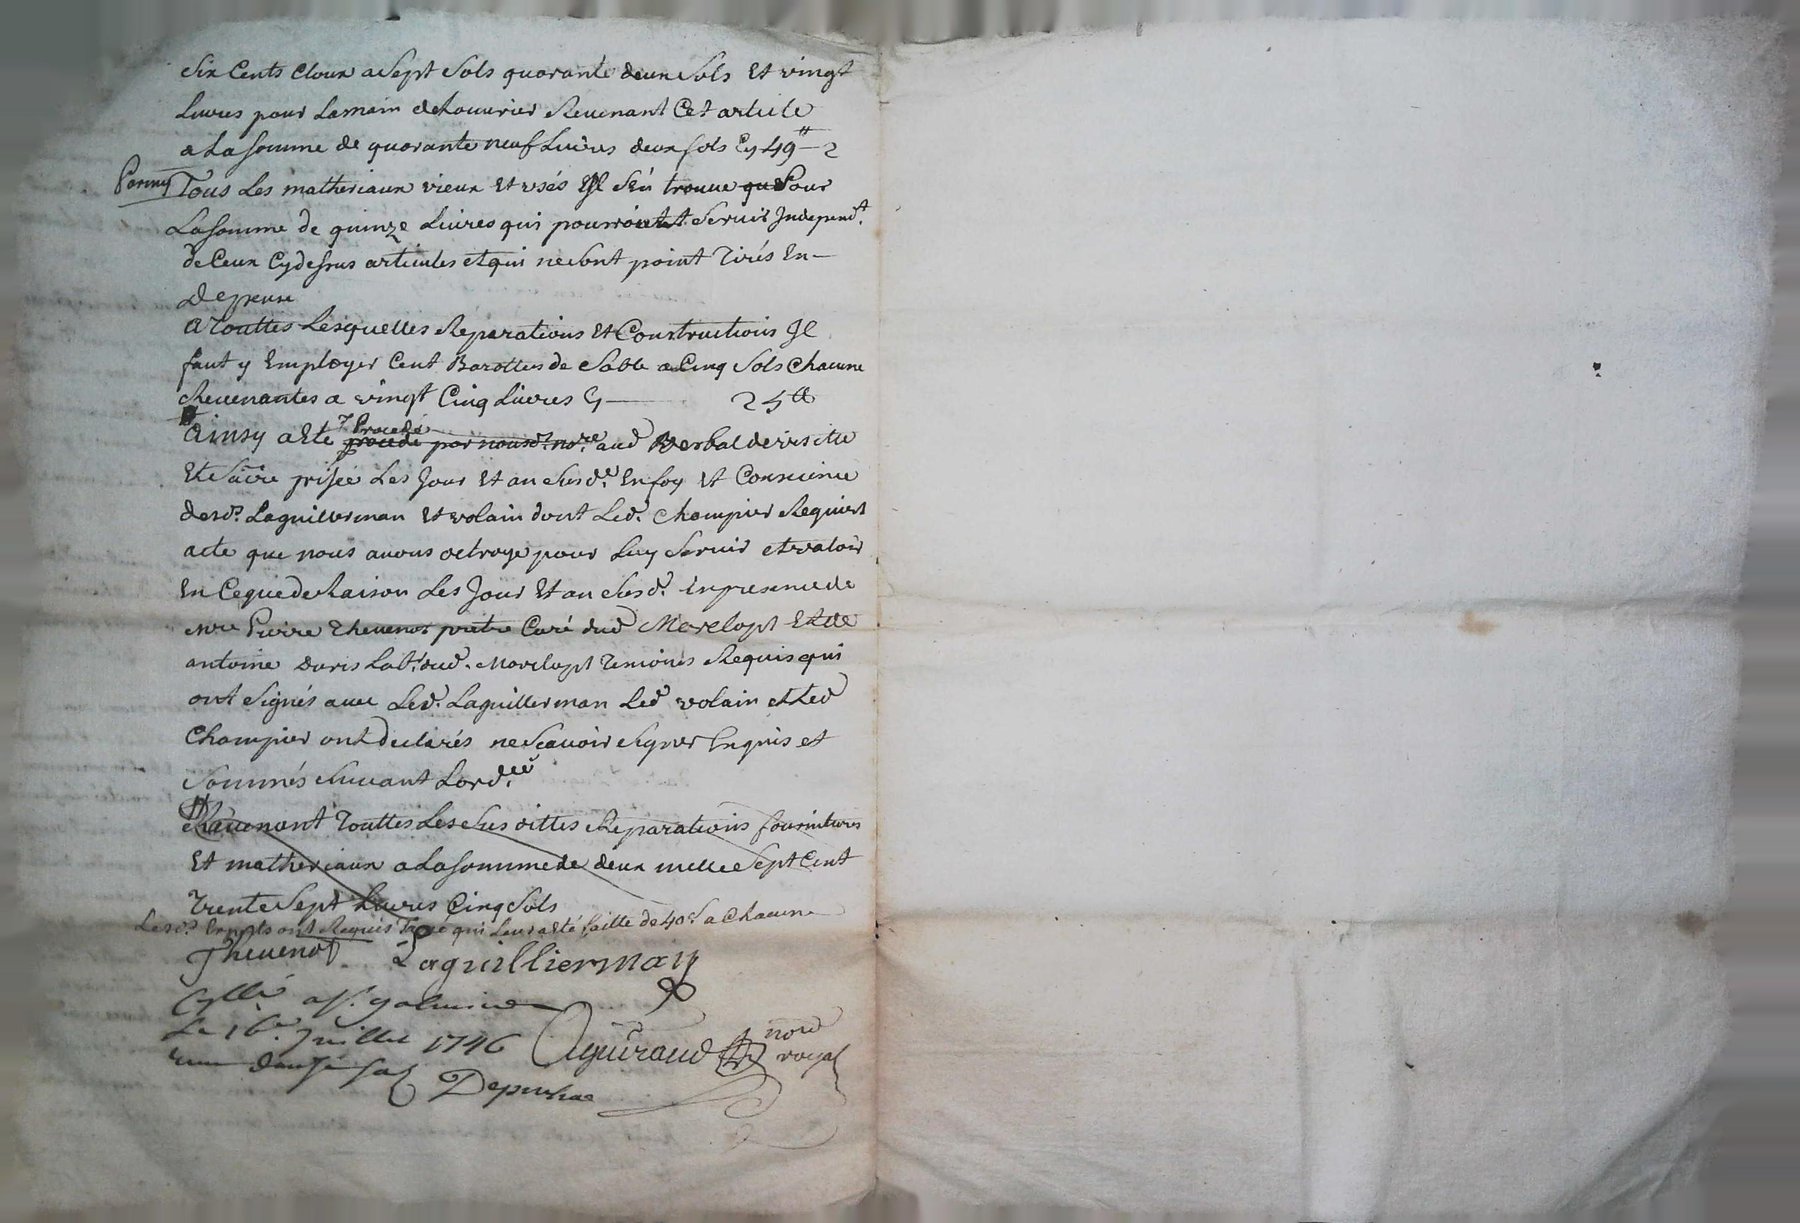 Six Cents cloux a Sept Sols quarante deux Sols Et vingt
Livres pour Lamain deLouvrier Revenant Cet article
a La somme de quarante neuf Livres deux sols Cy 49tt 2
Parmy Tous Les matheriaux vieux Et usés Il S'En trouve que Pour
La somme de quinze Livres qui pourront Servir Independt.
de Ceux Cydessus articules et qui ne sont point Tirés En
Depense
a Touttes Lesquelles Reparations Et Constructions Il
faut y Employer Cent Barottes de Sable a Cinq Sols Chacune
Revenantes a vingt Cinq Livres Cy 25tt
Ainsy a Eté procedé procedé par nousd. nore. aud Verbal de visitte
Et prisée Les Jour Et an Susd. En foy Et Consience
desds. Laguillerman Et volain dont Led. Champier Requiert
acte que nous avons octroyé pour Luy Servir et valoir
En Ceque de Raison Les Jour Et an Susd. En presence de
mre Pierre Thevenot pretre Curé dud Montlopt Et de
antoine Duris Labr. dud. Montlopt Temoins Requis qui
ont Signés avec Led. Laguillerman Led volain et Led
Champier ont declarés ne Scavoir Signer Enquis et
Sommés Suivant Lord.
Revenant Touttes Les Susdittes Reparations fournitures
Et matheriaux a La somme de deux mille Sept Cent
Trente Sept Livres Cinq Sols
Lesds. Experts ont Requis Taxe qui Leur a Eté faitte de 40s. a Chacun
Thevenot Laguillierman
Cllé a St. galmier
Le 16e. Juillet 1746 Guiraud nore
royal